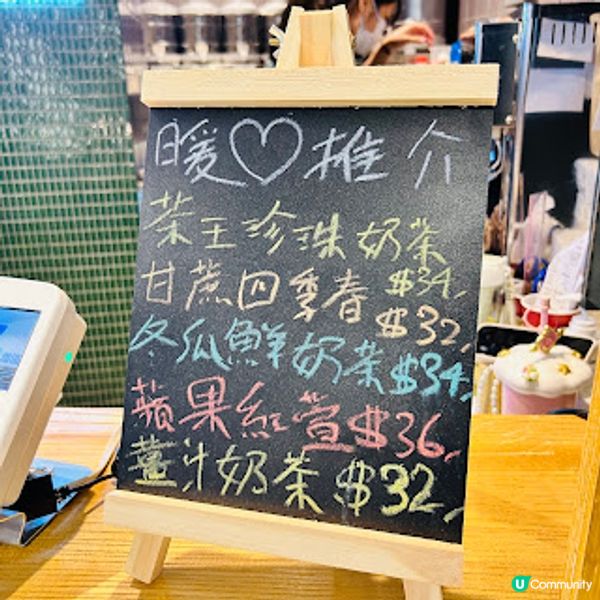 暖♡推介
茶王珍珠奶茶
$34,
甘蔗四季春
$32,
冬瓜鮮奶茶$34,
蘋果紅萱$36,
薑汁奶茶$32,
U Community